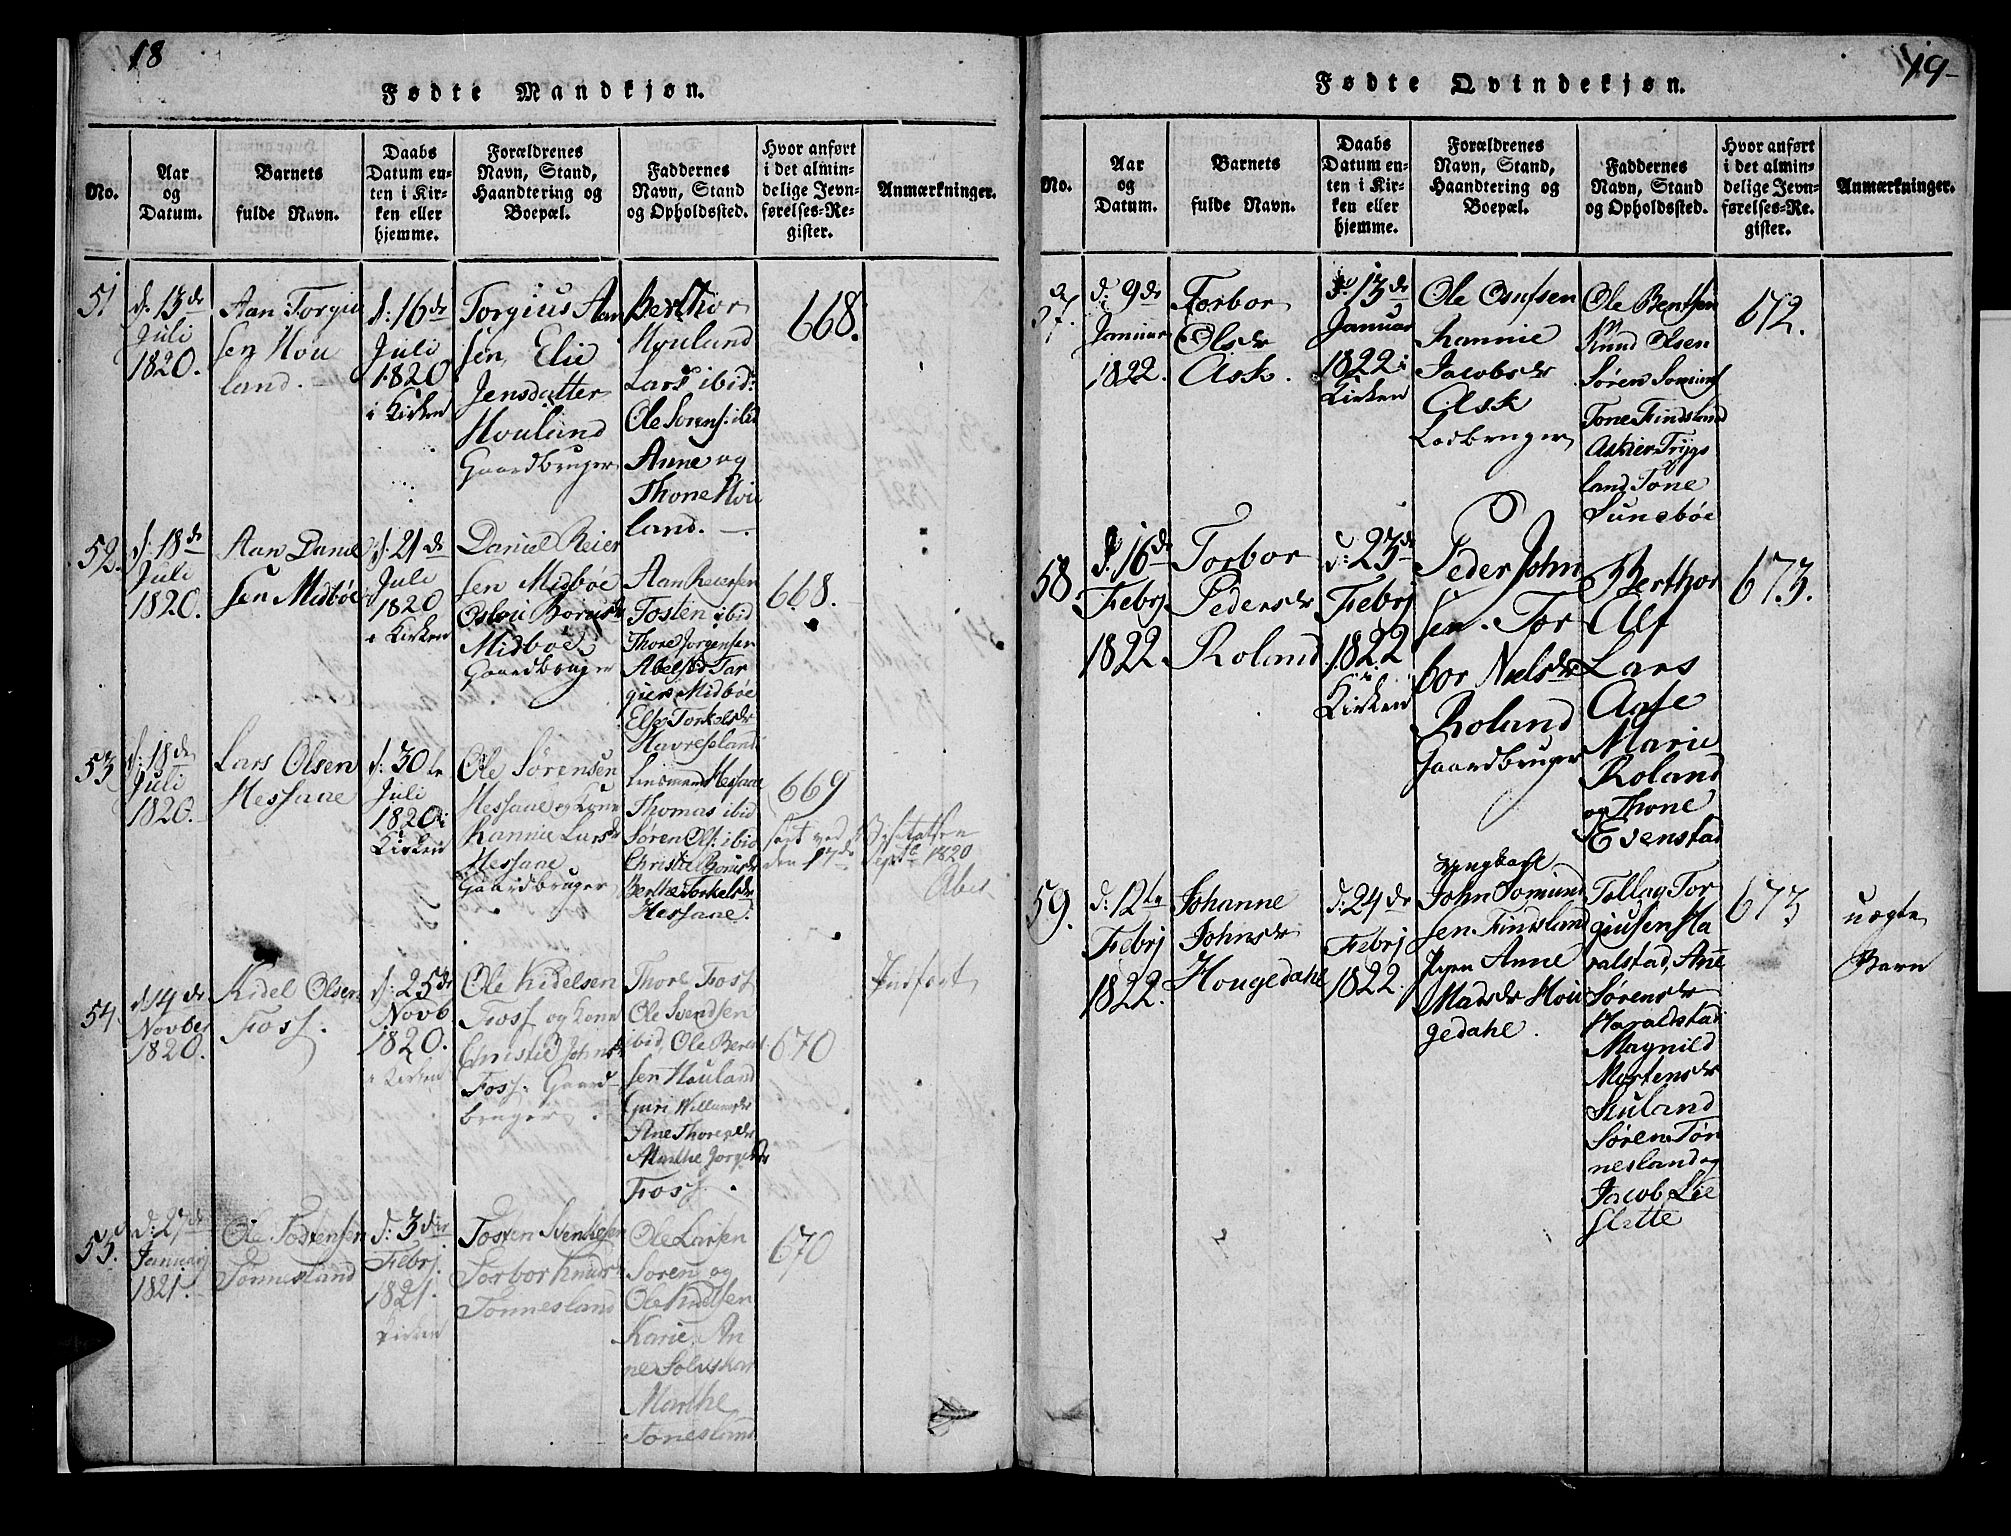 18
Fødte Mandkjøn.
No.
Aar
og
Datum.
Barnets
fulde Navn.
Daabs
Datum en-
ten i Kir-
ken eller
hjemme.
Forældrenes
Navn, Stand,
Haandtering og
Boepæl.
Faddernes
Navn, Stand
og Opholdssted.
Hvor anført
i det almin-
delige Jevn-
førelses-Re-
gister.
Anmærkninger.
51
d: 13de
Juli
1820.
Aan Torgiu
sen Hou
land.
d: 16de
Juli
1820
i Kirken
Torgius Aan
sen, Elie
Jensdatter
Houland
Gaardbruger
Berthor
Houland
Lars ibid:
Ole Sorens: ibid
Anne og
Thone Hou
land.
668.
52.
d: 18de
Juli
1820.
Aan Daniel
sen Midbøe
d: 21de
Juli
1820
i Kirken
Daniel Reier
sen Midbøe
Midbøe
Gaardbruger
Aan Reiersen
Tosten ibid
Thore Jorgensen
Midbøe
Else Torkelsdr
Havresland
668.
53
d: 18de
Juli
1820.
Lars Olsen
Hessaae
d: 30te
Juli
1820 i
Kirken
Ole Sørensen
Hessaae og Kone
Kannie Larsdr
Hessaae
Gaardbruger
Lensmand Hessaae
Thomas ibid
Søren Ols: ibid
Berthe Torkelsdr
Hessaae.
669
den 17de Septbr 1820
54.
d. 14de
Novber
1820.
Kidel Olsen
Foss.
d: 25de
Novb
1820.
i Kirken
Ole Kidelsen
Foss og Kone
Christie Johnsdr
Foss. Gaard-
bruger
Thore Foss
Ole Svendsen
ibid, Ole Berent
sen Houland
Guri Willumsdr
Ane Thoresdr
Marthe Jorgensdr
Foss.
670
55.
d: 27de
Januarj
1821.
Ole Tostensen
Tønnesland
d: 3die
Febrj.
1821.
Kirken
Tosten Svenkesen
Torbor Knudsdr
Tønnesland
Ole Larsen
Soren og
Ole Knudsen
Karie, An
ne Solvskar
Marthe
Tonesland
670
19
Fødte Qvindekjøn.
No.
Aar
og
Datum.
Barnets
fulde Navn.
Daabs
Datum en-
ten i Kir-
ken eller
hjemme.
Forældrenes
Navn, Stand,
Haandtering og
Boepæl.
Faddernes
Navn, Stand
og Opholdssted.
Hvor anført
i det almin-
delige Jevn-
førelses-Re-
gister.
Anmærkninger.
57.
d: 9de
Januar
1822.
Torbor
Olsdr
Ask.
d: 13de
Januar
1822 i
Kirken
Ole Osufsen
Kannie
Jacobsdr
Ask
Ole Bentsen
Knud Olsen
Søren Somund
Tone Findsland
Asbier Trygs
land, Tone
Sunebøe
672.
58.
d. 16de
Febrj
1822
Torbor
Pedersdr
Roland
d: 23de
Febrj
1822
Kirken
Peder John
sen. Tor
bor Nielsdr
Roland
Gaardbruger
Berthor
Alf
Lars
Aase
Marie
Roland
og Thone
Evenstad
673.
59.
d: 12te
Febrj
1822.
Johanne
Johnsdr
Hougedahl
d: 24de
Febrj
1822.
Ungkarl
John Somund
sen Findsland
Pigen Anne
Madsdr Hou
gedahl.
Tollag Tor
giusen Ha
ralstad, Ane
Sørensdr
Haraldstad
Magnild
Mortensdr
Søren Tøn
nesland og
Jacob Lie
slette
673
uægte
Barn